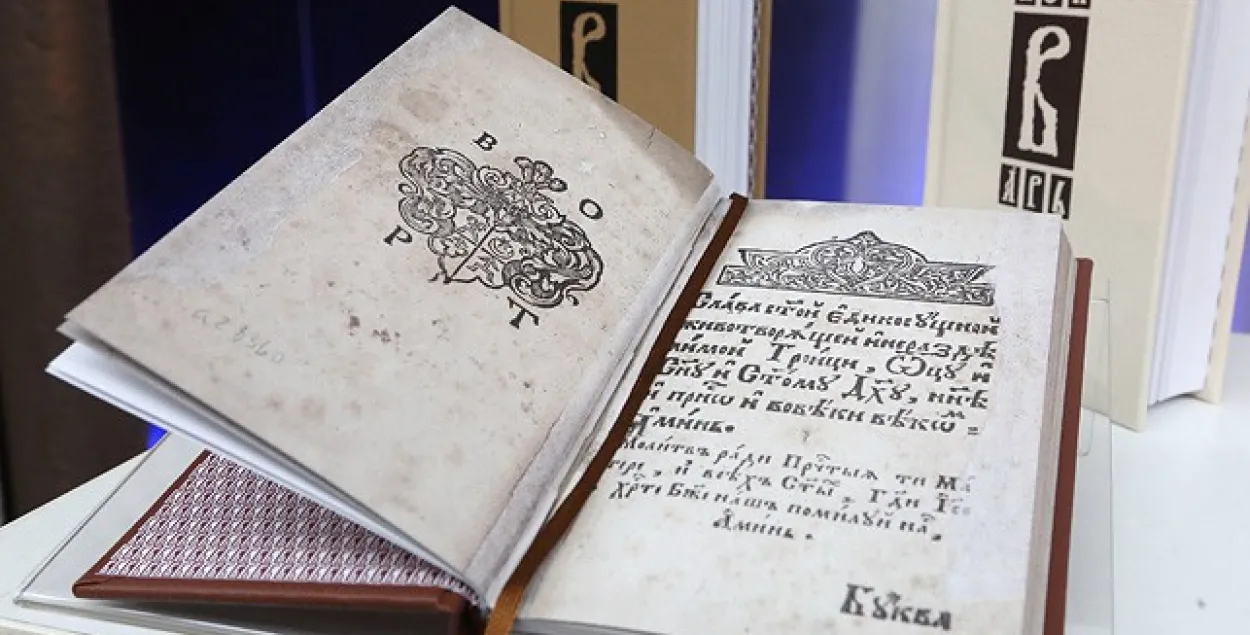 В
О
Р
Т
Сла́ва ст҃ой є҆диносꙋ́щной
животворѧ́щей и҆нераздѣ
ли́мой Тро́йци, Ѡцꙋ и҆
Сн҃ꙋ и҆ Ст҃омꙋ Дх҃ꙋ, нн҃ѣ
и҆ при́сѡ и҆ вовѣ́ки вѣкѡⷨ =
А҆ми́нь.
Моли́твъ ра́ди Прⷭ҇тыѧ ти Ма
тери, и҆ всѣ́хъ Ст҃ы, Гдⷭ҇и Іс҃е
Хрⷭ҇те Бж҃е на́шъ поми́лꙋй наⷭ҇,
А҆ми́нь.
Бꙋква
АРЬ